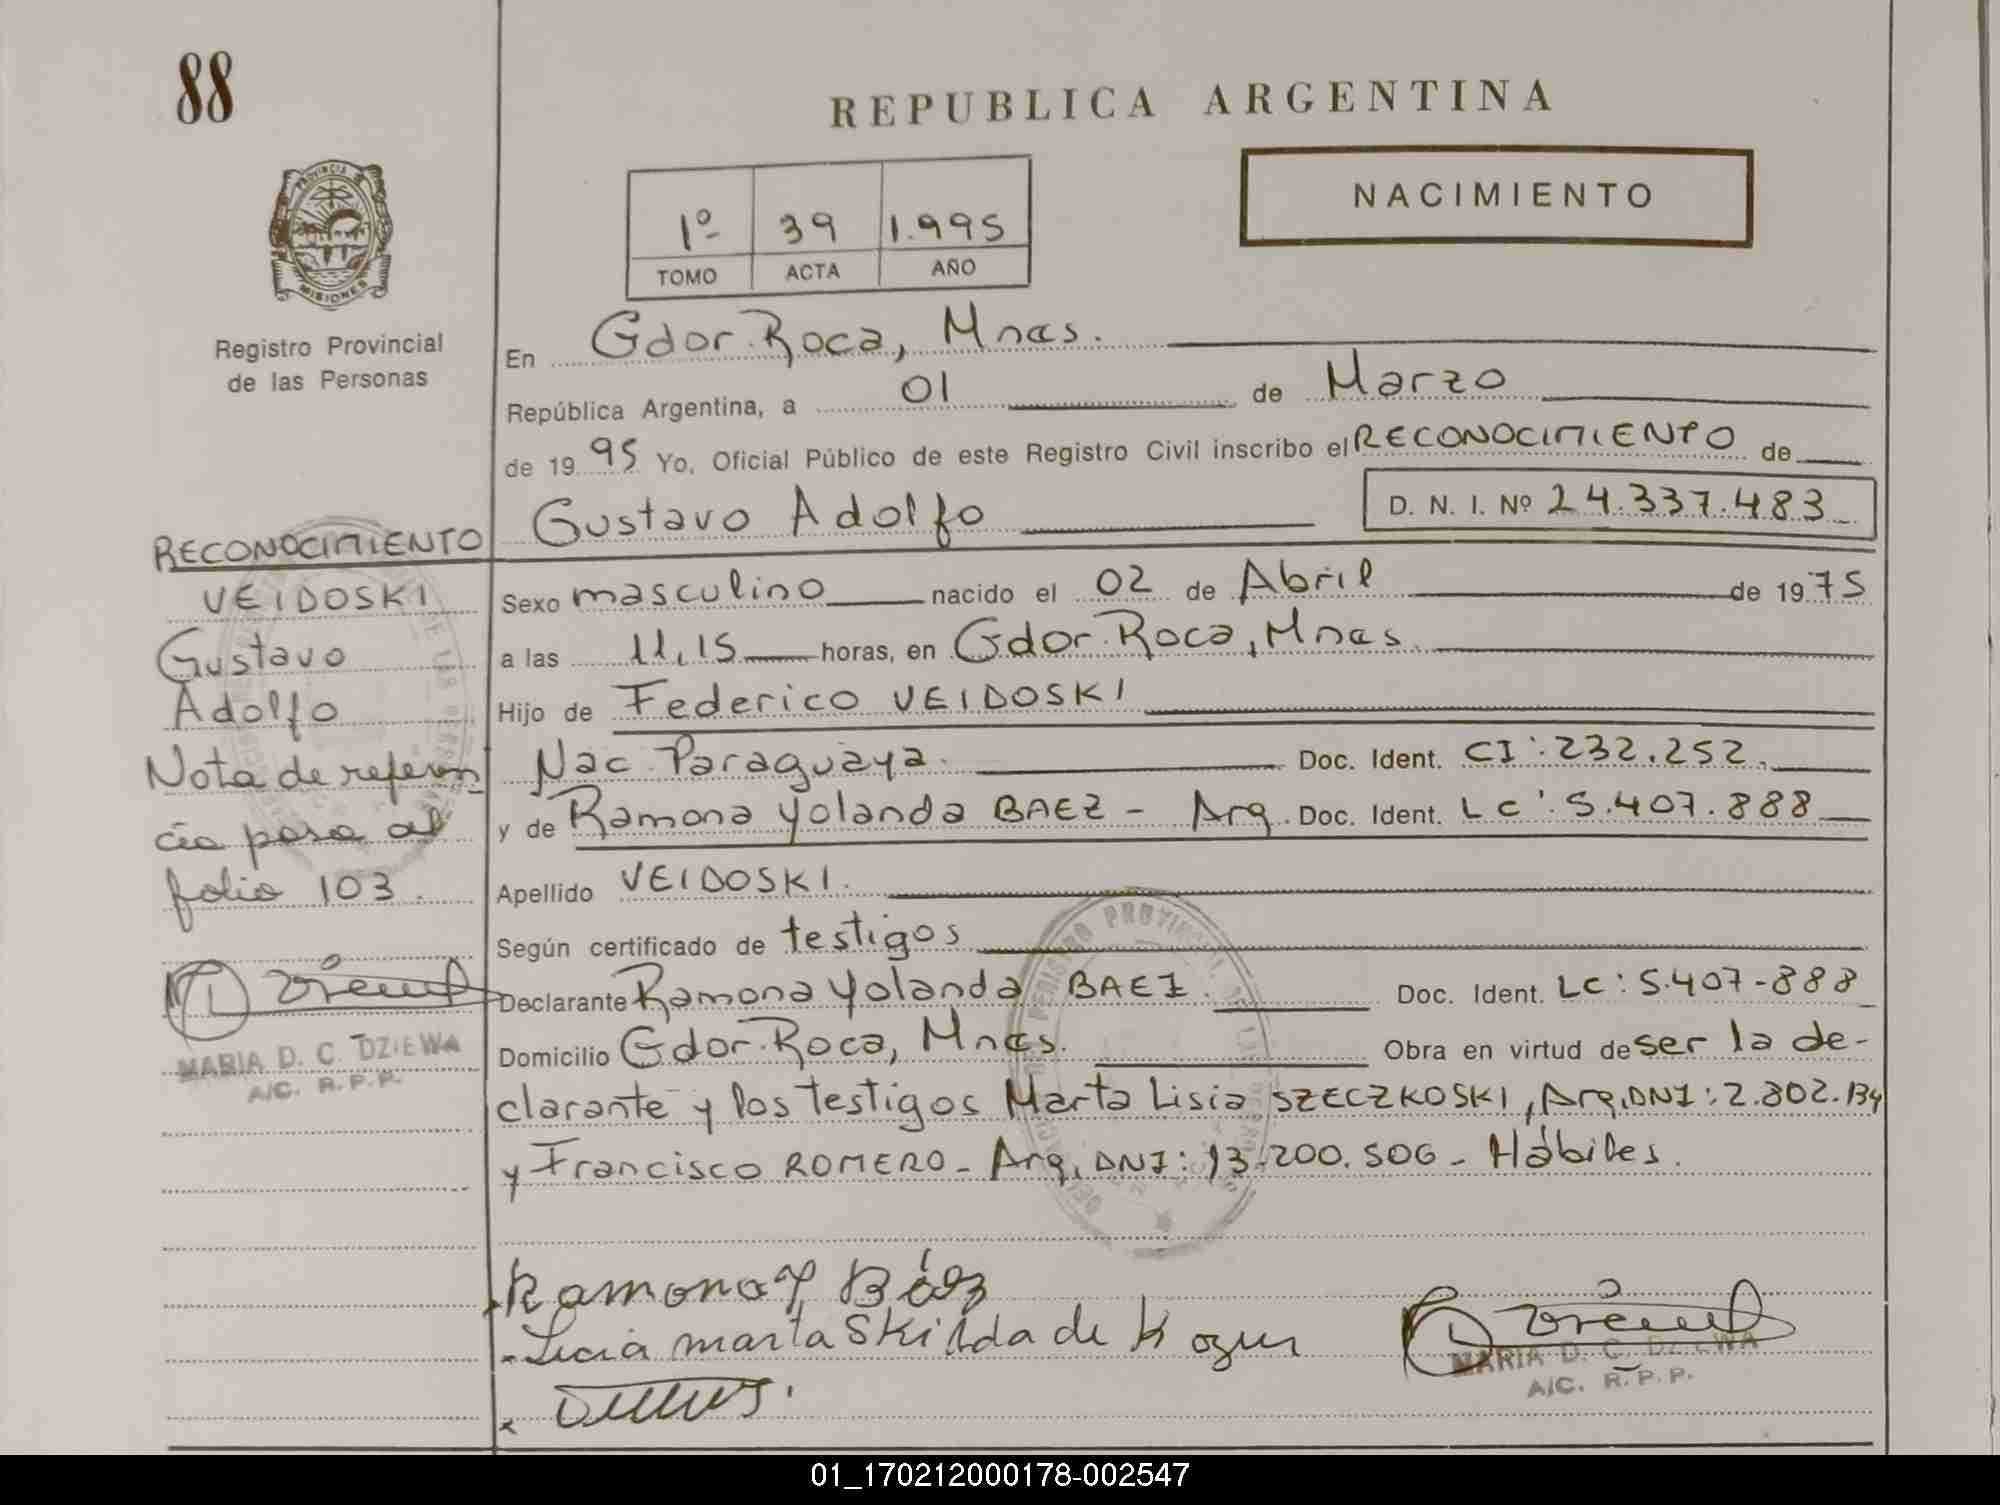 88
REPUBLICA ARGENTINA
PROVINCIA DE
MISIONES
Registro Provincial
de las Personas
1º 39 1.995
TOMO ACTA AÑO
NACIMIENTO
En Gdor. Roca, Mnes.
República Argentina, a 01 de Marzo
de 1995 Yo, Oficial Público de este Registro Civil inscribo el RECONOCIMIENTO de
Gustavo Adolfo D. N. I. Nº 24.337.483
Sexo masculino nacido el 02 de Abril de 1975
a las 11,15 horas, en Gdor. Roca, Mnes.
Hijo de Federico VEIDOSKI
Nac. Paraguaya. Doc. Ident. CI: 232.252.
y de Ramona Yolanda BAEZ - Arg. Doc. Ident. LC: 5.407.888
Apellido VEIDOSKI.
Según certificado de testigos
Declarante Ramona Yolanda BAEZ. Doc. Ident. LC: 5.407-888
Domicilio Gdor. Roca, Mnes. Obra en virtud de ser la de-
clarante y los testigos Marta Lisia SZECZKOSKI, Arg. DNI: 2.802.134
y Francisco ROMERO - Arg, DNI: 13.200.506 - Hábiles.
Ramona Y Báez
Lucia marta
MARIA D. C. DZIEWA
A/C. R.P.P.
RECONOCIMIENTO
VEIDOSKI
Gustavo
Adolfo
Nota de referen
cia pasa al
folio 103.
MARIA D. C. DZIEWA
A/C. R.P.P.
01_170212000178-002547